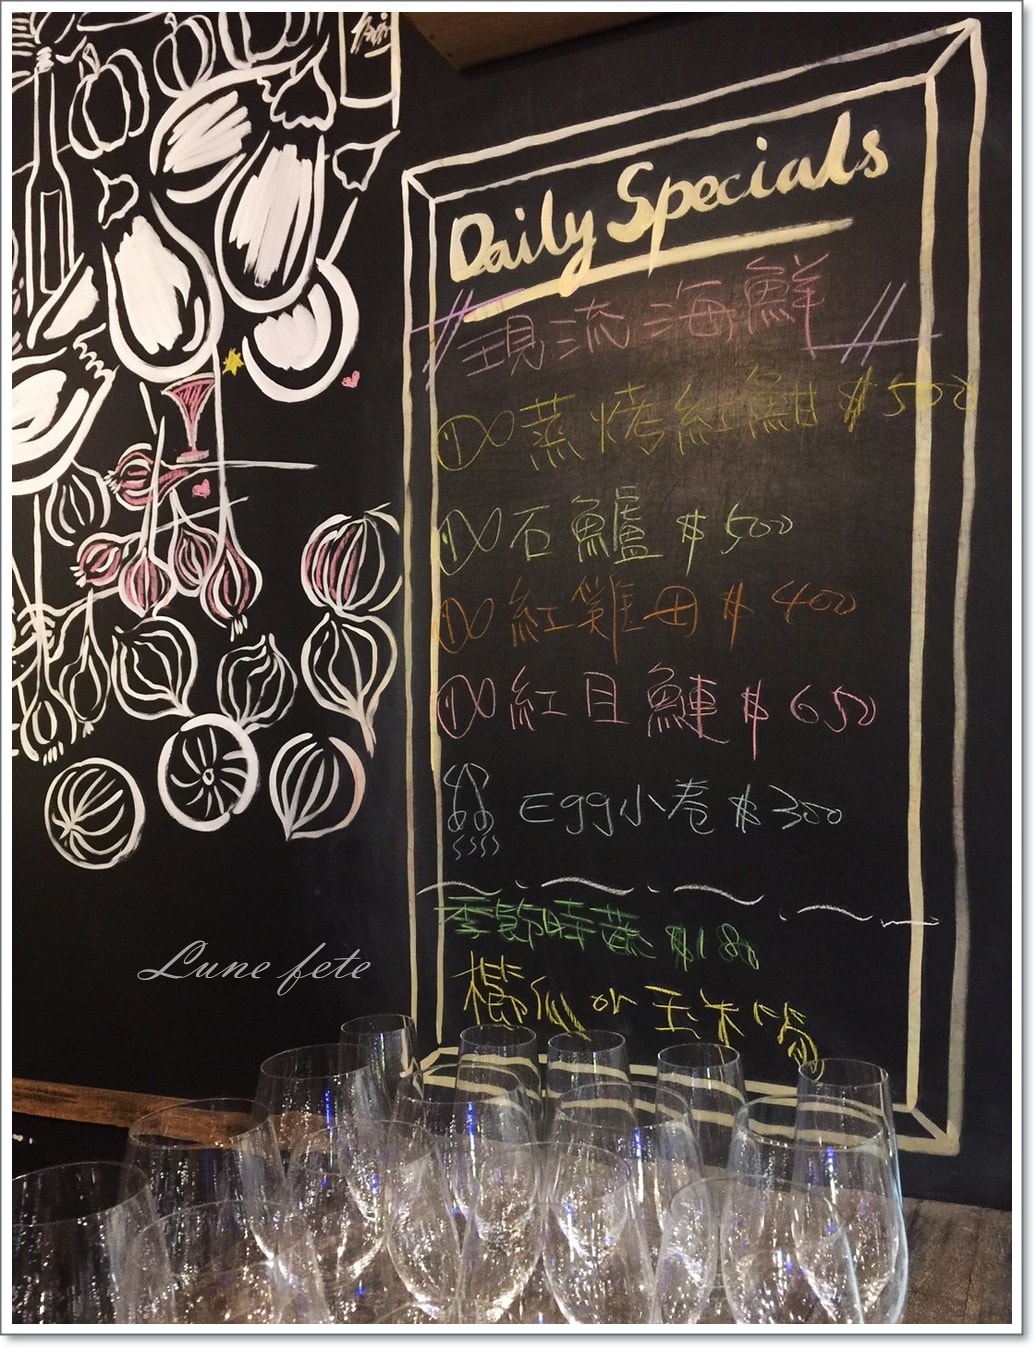 Daily Specials
現流海鮮
蒸烤紅魽 $500
石鱸 $500
紅雞母 $400
紅目鰱 $650
Egg小卷 $300
季節時蔬 $180
櫛瓜 or 玉米筍
Lune fete